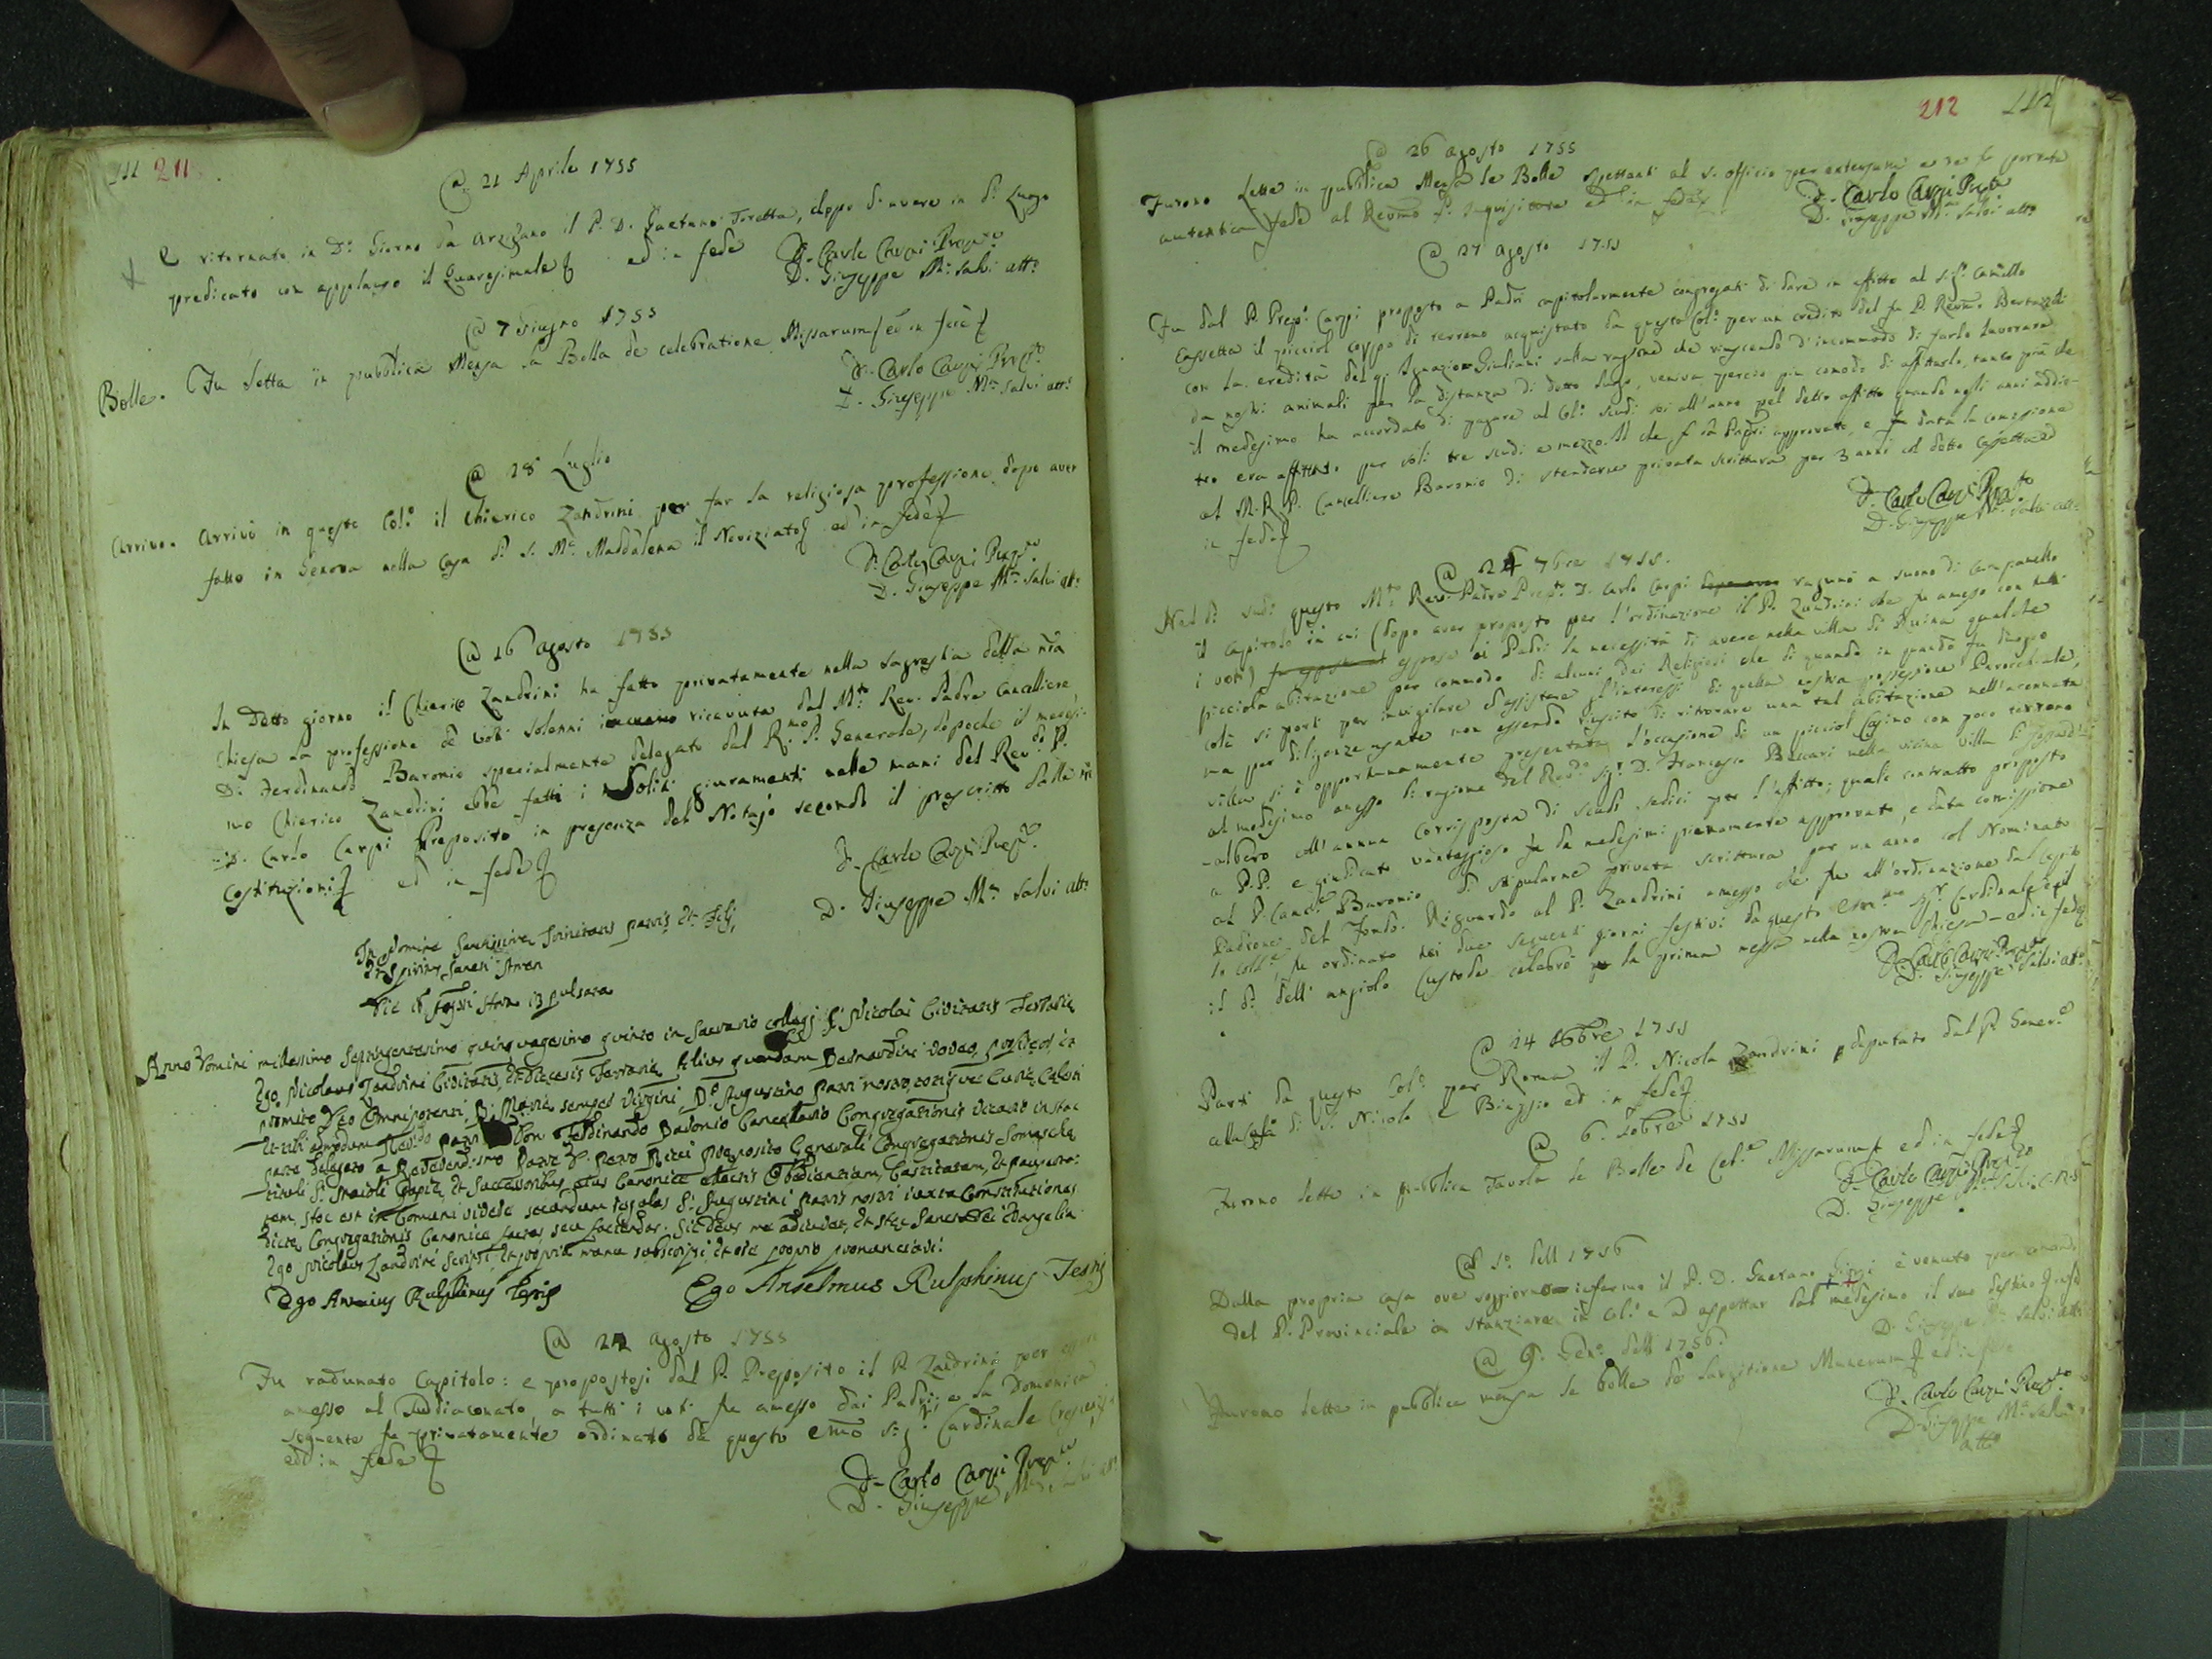 111 211
@ 21 Aprile 1755
È ritornato in D.º Giorno da Arzignano il P. D. Gaetano Toretta, doppo d'avere in d.º Luogo
predicato con applauso il Quaresimale ed in fede D. Carlo Carpi Prep.to
D. Giuseppe M.a Salvi att.º
@ 7 Giugno 1755
Bolle. Fu letta in pubblica Mensa la Bolla de celebratione Missarum ed in fede
D. Carlo Carpi Prep.to
D. Giuseppe M.a Salvi att.º
@ 28 Luglio
Arrivo. Arrivò in questo Col.º il Chierico Zandrini per far la religiosa professione dopo aver
fatto in Genova nella Casa di S. M.a Maddalena il Noviziato ed in fede
D. Carlo Carpi Prep.to
D. Giuseppe M.a Salvi att.º
@ 16 Agosto 1755
In Detto giorno il Chierico Zandrini ha fatto privatamente nella sagrestia della nr̃a
Chiesa la professione de voti solenni ricevuta dal M.to Rev. Padre Cancelliere
D. Ferdinando Baronio specialmente delegato dal R.mo P. Generale, dopoche il medesi-
mo Chierico Zandrini ebbe fatti i soliti giuramenti nelle mani del Rev.do P.
D. Carlo Carpi Preposito in presenza del Notajo secondo il prescritto dalle nr̃e
Costituzioni ed in fede
D. Carlo Carpi Prep.to
D. Giuseppe M.a Salvi att.º
In nomine Sanctissime Trinitatis Patris et Filij,
et Spiritus Sancti Amen
Anno Domini millessimo septingentesimo quinquagesimo quinto in Sacrario Collegij S. Nicolai Civitatis Ferrarie
Ego Nicolaus Zandrini Civitatis, et Diecesis Ferrarie filius quondam Bernardini voveo, profiteor, et
promito Deo Omnipotenti, B. Marie semper Virgini, D. Augustino Patri nostro, totique Curie Celesti
et tibi admodum Reve.do Patri Don Ferdinando Baronio Cancelario Congregationis vicario in hac
parte delegato a Reverendissmo Patre D. Petro Ricci Preposito Generali Congregationis Somasche
tituli S. Maioli Papie, et Successoribus eius Canonice electis Obedientiam, Castitatem, et Pauperta-
tem, hoc est in Comuni vivere secundum regolas S. Augustini Patris nostri iuxta Constitutiones
dicte Congregationis Canonice factas seu faciendas. Sic Deus me adiuvet, et hec Sancta Dei Evangelia.
Ego Nicolaus Zandrini scripsi, et propria manu subscripsi et ore proprio pronunciavi.
Ego Antonius Rulphinus Testis Ego Anselmus Rulphinus Testis
@ 22 Agosto 1755
Fu radunato Capitolo: e propostosi dal P. Preposito il P. Zandrini per essere
amesso al Suddiaconato a tutti i voti fu amesso dai Padri; e la Domenica
seguente fu privatamente ordinato da questo Emõ Sig.r Cardinale Crescenzi
ed in fede
D. Carlo Carpi Prep.to
D. Giuseppe M.a Salvi att.º
212 112
@ 26 Agosto 1755
Furono lette in pubblica Mensa le Bolle spettanti al S. Officio per extensum e se ne portata
autentica fede al Revmo P. Inquisitore ed in fede D. Carlo Carpi Prep.to
D. Giuseppe M.a Salvi att.º
@ 27 Agosto 1755
Fu dal P. Prep.º Carpi proposto a Padri capitolarmente congregati di dare in affitto al Sig.r Camillo
Cassetta il picciol coppo di terreno acquistato da questo Col.º per un credito del fu P. Revm.º Bertazzoli
con la eredità del q. Ignazio Giuliani sulla ragione che riuscendo d'incommodo di farlo lavorare
da nostri animali per la distanza di detto luogo, veniva perciò più comodo di affittarlo, tanto più che
il medesimo ha accordato di pagare al Col.º scudi sei all'anno pel detto affitto quando negli anni addie-
tro era affittato per soli tre scudi e mezzo. Il che, f da Padri approvato, e fu data la comissione
al M.R.P. Cancelliere Baronio di stenderne privata scrittura per 3 anni col detto Cassetta ed
in fede
D. Carlo Carpi Prep.to
D. Giuseppe M.a Salvi att.º
@ 24 7bre 1755.
Nel dì sud.º questo M.to Rev. Padre Prep.to D. Carlo Carpi radunò a suono di Campanello
il Capitolo in cui (dopo aver proposto per l'ordinazione il P. Zandrini che fu amesso con tutti
i voti) espose ai Padri la necessità di avere nella villa di Ruina qualche
picciola abitazione per commodo di alcuni dei Religiosi che di quando in quando fa d'uopo
colà si porti per invigilare ed assistere gl'interessi di quella nostra possessione Parochiale,
ma per diligenze usate non essendo riuscito di ritrovare una tal abitazione nell'accennata
villa si è opportunamente presentata l'occasione di un picciol Casino con poco terreno
al medesimo anesso di ragione del Rev.do Sig.r D. Francesco Baccari nella vicina villa di
albero coll'annua corrisposta di scudi sedici per l'affitto; quale contratto proposto
a P.P. e giudicato vantaggioso fu da medesimi pienamente approvato, e data comissione
al P. Canc.e Baronio di stipularne privata scrittura per un anno col Nominato
Padrone del Fondo. Riguardo al P. Zandrini amesso che fu all'ordinazione dal Capito-
lo Coll.e, fu ordinato nei due seguenti giorni festivi da questo Em.mo Sig.r Cardinale e il
il dì dell'Angiolo Custode celebrò la prima messa nella nostra Chiesa - ed in fede
D. Carlo Carpi Prep.to
D. Giuseppe Salvi att.º
@ 14 8bre 1755
Partì da questo Col.º per Roma il P. Nicola Zandrini deputato dal P. Gener.e
alla di S. Nicola e Biaggio ed in fede
@ 6. Xobre 1755
Furono lette in pubblica Tavola le Bolle de Cel.e Missarum ed in fede
D. Carlo Carpi Prep.to
D. Giuseppe M.a Salvi C.R.S.
dell 1756
Dalla propria casa ove soggiornò infermo il P. D. Gaetano è venuto per comando
del P. Provinciale a stanziare in Col.º e ad aspettar dal medesimo il suo destino
D. Giuseppe M.a Salvi att.º
@ 9. Gen.º dell 1756.
Furono lette in pubblica mensa le bolle de largitione Munerum ed in fede
D. Carlo Carpi Prep.to
D. Giuseppe M.a Salvi
att.º